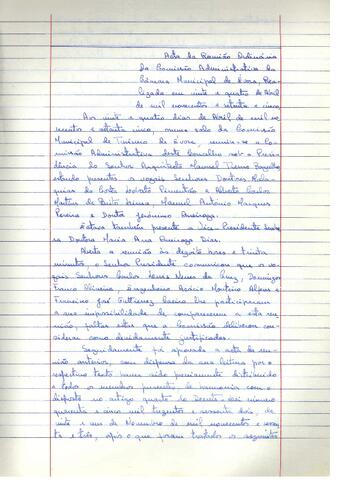 Acta da Reunião Ordinária
da Comissão Administrativa da
Câmara Municipal de Évora, Rea-
lizada em vinte e quatro de Abril
de mil novecentos e setenta e cinco
Aos vinte e quatro dias de Abril de mil no-
vecentos e setenta e cinco, numa sala da Comissão
Municipal de Turismo de Évora, reuniu-se a Co-
missão Administrativa deste Concelho sob a Presi-
dência do Senhor Arquitecto Manuel
estando presentes os vogais Senhores Doutores
da Costa e Alberto Carlos
Martins de Brito Lima, Manuel António Marques
Pereira e Doutor Jerónimo
Estava também presente a Vice-Presidente Senho-
ra Doutora Maria Ana Dias.
Aberta a reunião às dezoito horas e trinta
minutos, o Senhor Presidente comunicou que os vo-
gais Senhores Carlos Neves da Cruz, Domingos
Franco Oliveira, Engenheiro Acácio Monteiro e
Francisco José Gutierrez lhe participaram
a sua impossibilidade de comparecerem a esta reu-
nião, faltas estas que a Comissão deliberou con-
siderar como devidamente justificadas.
Seguidamente foi aprovada a acta da reu-
nião anterior, sem dispensa da sua leitura por o
respectivo texto haver sido previamente distribuído
a todos os membros presentes, de harmonia com o
disposto no artigo quarto do Decreto-Lei número
quarenta e cinco mil trezentos e sessenta e dois, de
vinte e um de Novembro de mil novecentos e sessen-
ta e três, após o que foram tratados os seguintes